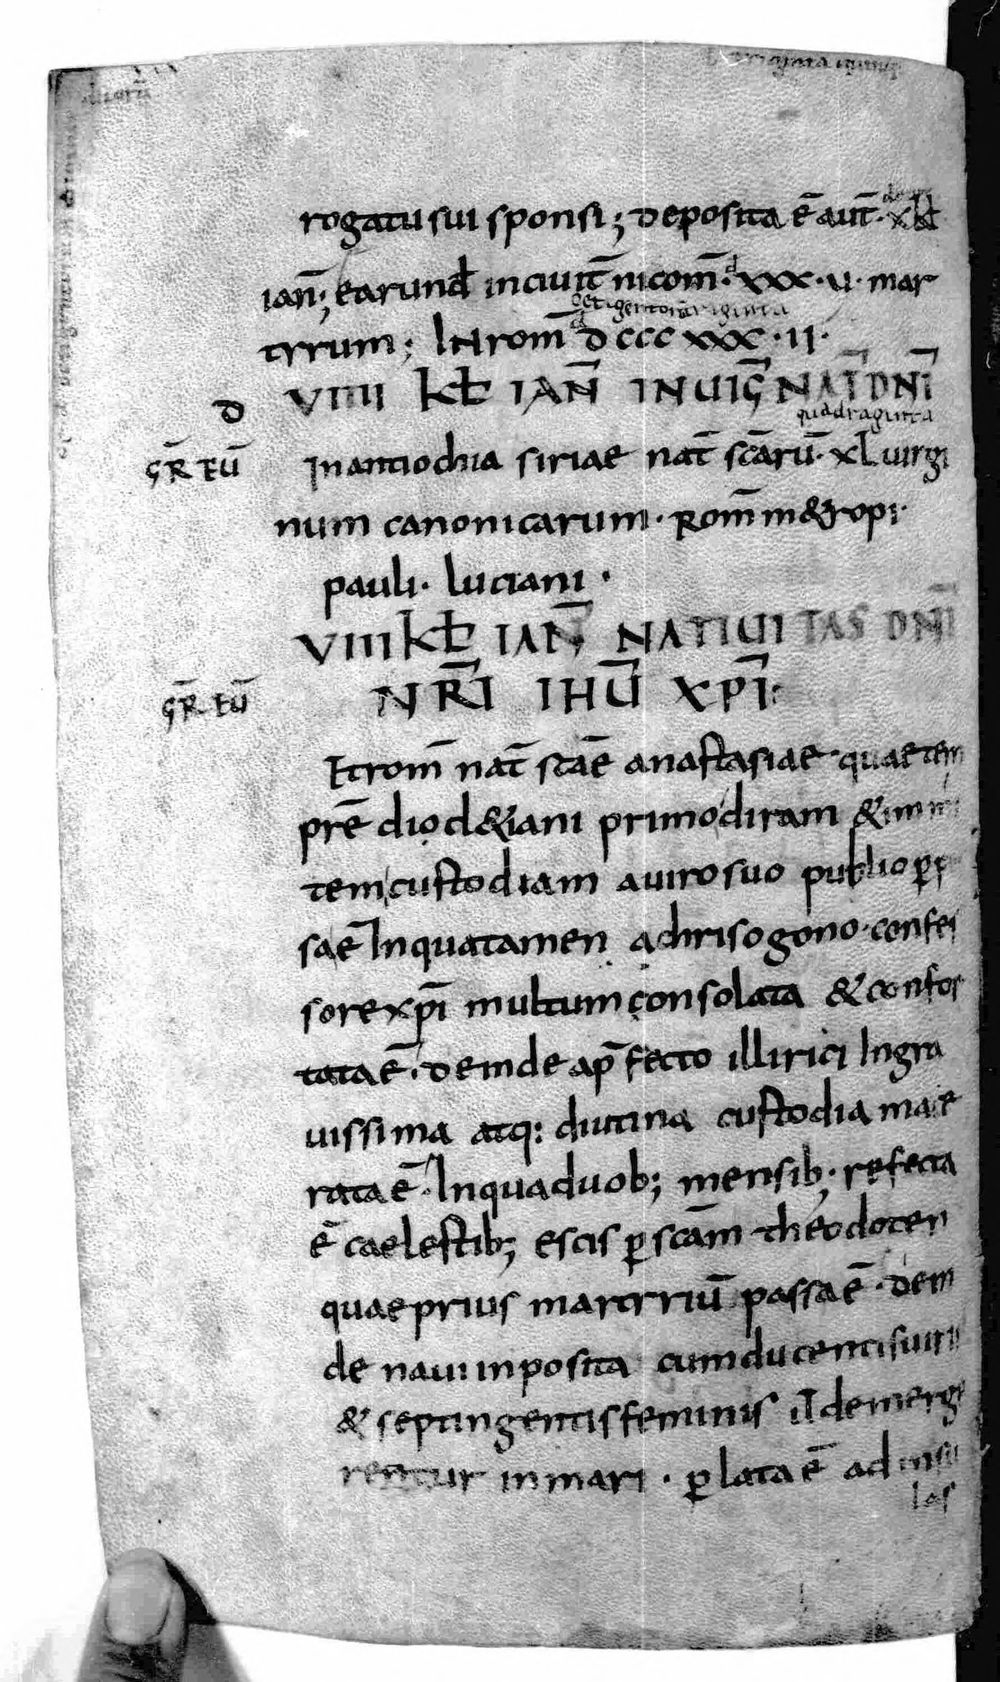 rogatu sui sponsi; deposita ē aut̄ · x kł
ian̄; earund̄ in ciuit̄ nicom̄ · xxx · u · mar
tyrum; In rom̄ dccc xxx · ii ·
VIIII KŁ IAN̄ IN UIG̅ NAT̄ DN̄I
d
quadraginta
gr̄ eū
In antiochia siriae nat̄ scārū · xl uirgi
num canonicarum · Rom̄ m&rop; ·
pauli · luciani ·
VIII KŁ IAN̄ NATIUITAS DN̄I
gr̄ eū
NR̄I IHŪ XP̄I:
Et rom̄ nat̄ scāe anastasiae · quae tem
prē diocl&iani primo diram & inmi
tem custodiam a uiro suo publio p̱
saē In qua tamen a chrisogono · confes
sore xp̄i multum consolata & confor
tata ē · deinde a p̄fecto illirici In gra
uissima atq: diutina custodia mace
rata ē · In qua duob; mensib; · refecta
ē caelestib; escis p̱ scām theodoten
quae prius martyriū passa ē · dein
de naui inposita cum ducentis uiris
& septingentis feminis ut demerge
rentur in mari · p̱lata ē ad insu
las